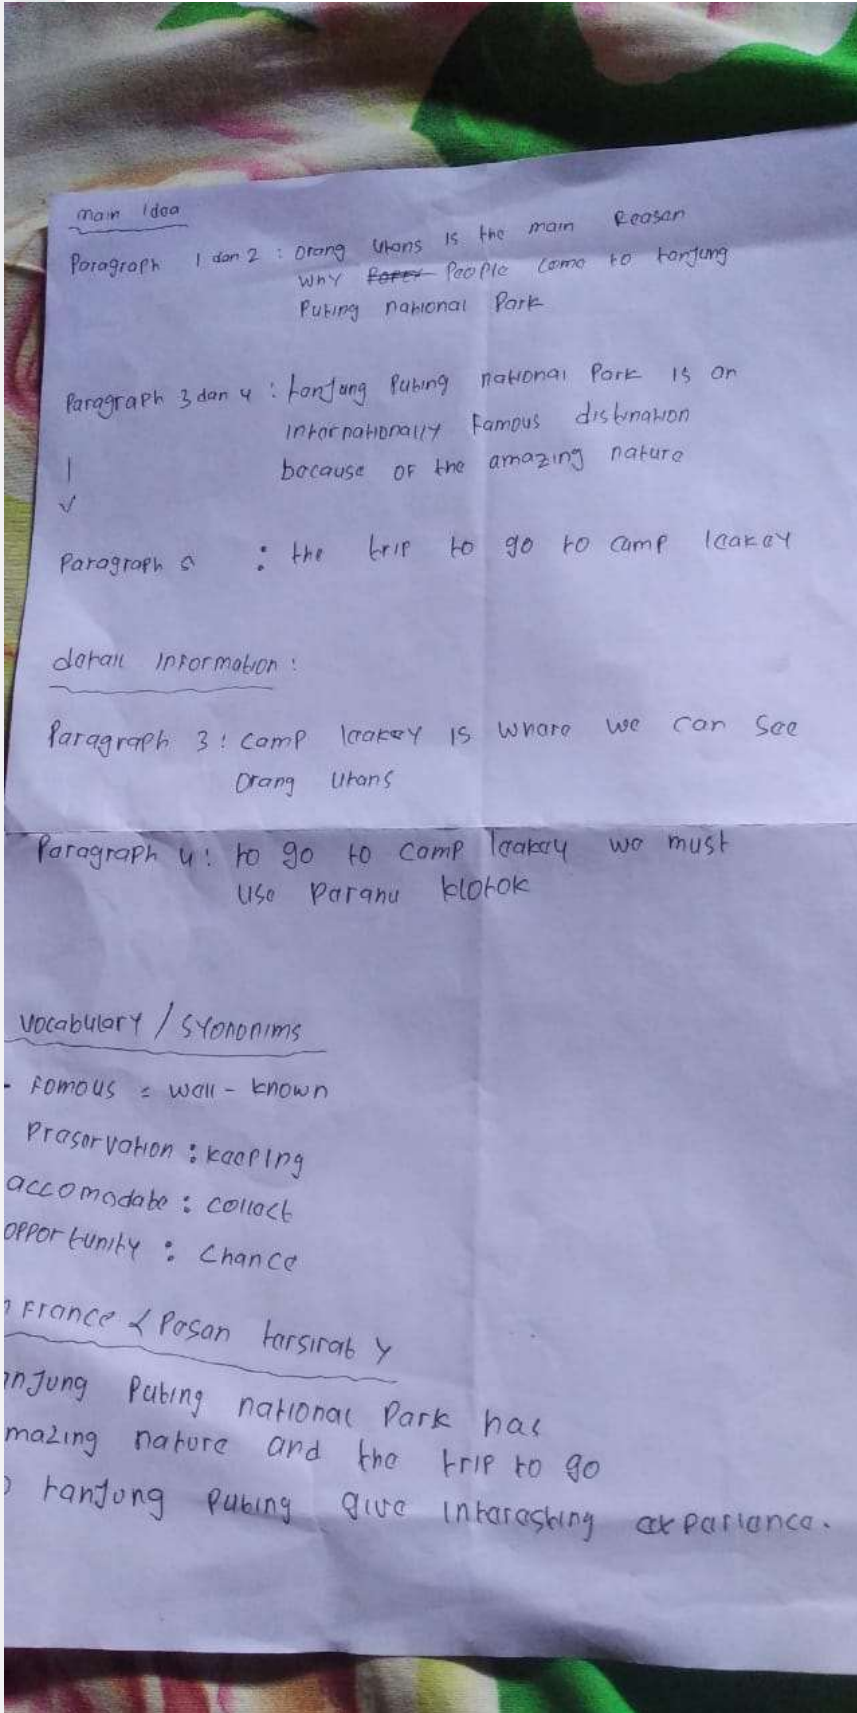 main Idea
Paragraph 1 dan 2 : orang utans is the main Reason
why people come to tanjung
Puting national Park
Paragraph 3 dan 4 : tanjung Puting national Park is an
internationally famous distination
because of the amazing nature
Paragraph 5 : the trip to go to camp leakey
detail information :
Paragraph 3 : camp leakey is where we can see
orang utans
Paragraph 4 : to go to camp leakey we must
use Parahu klotok
Vocabulary / Syononims
- Famous = well - known
Preservation : keeping
accomodate : collect
opportunity : chance
France < Pesan tersirat >
anjung Puting national Park has
mazing nature and the trip to go
o tanjung puting give interesting experience.